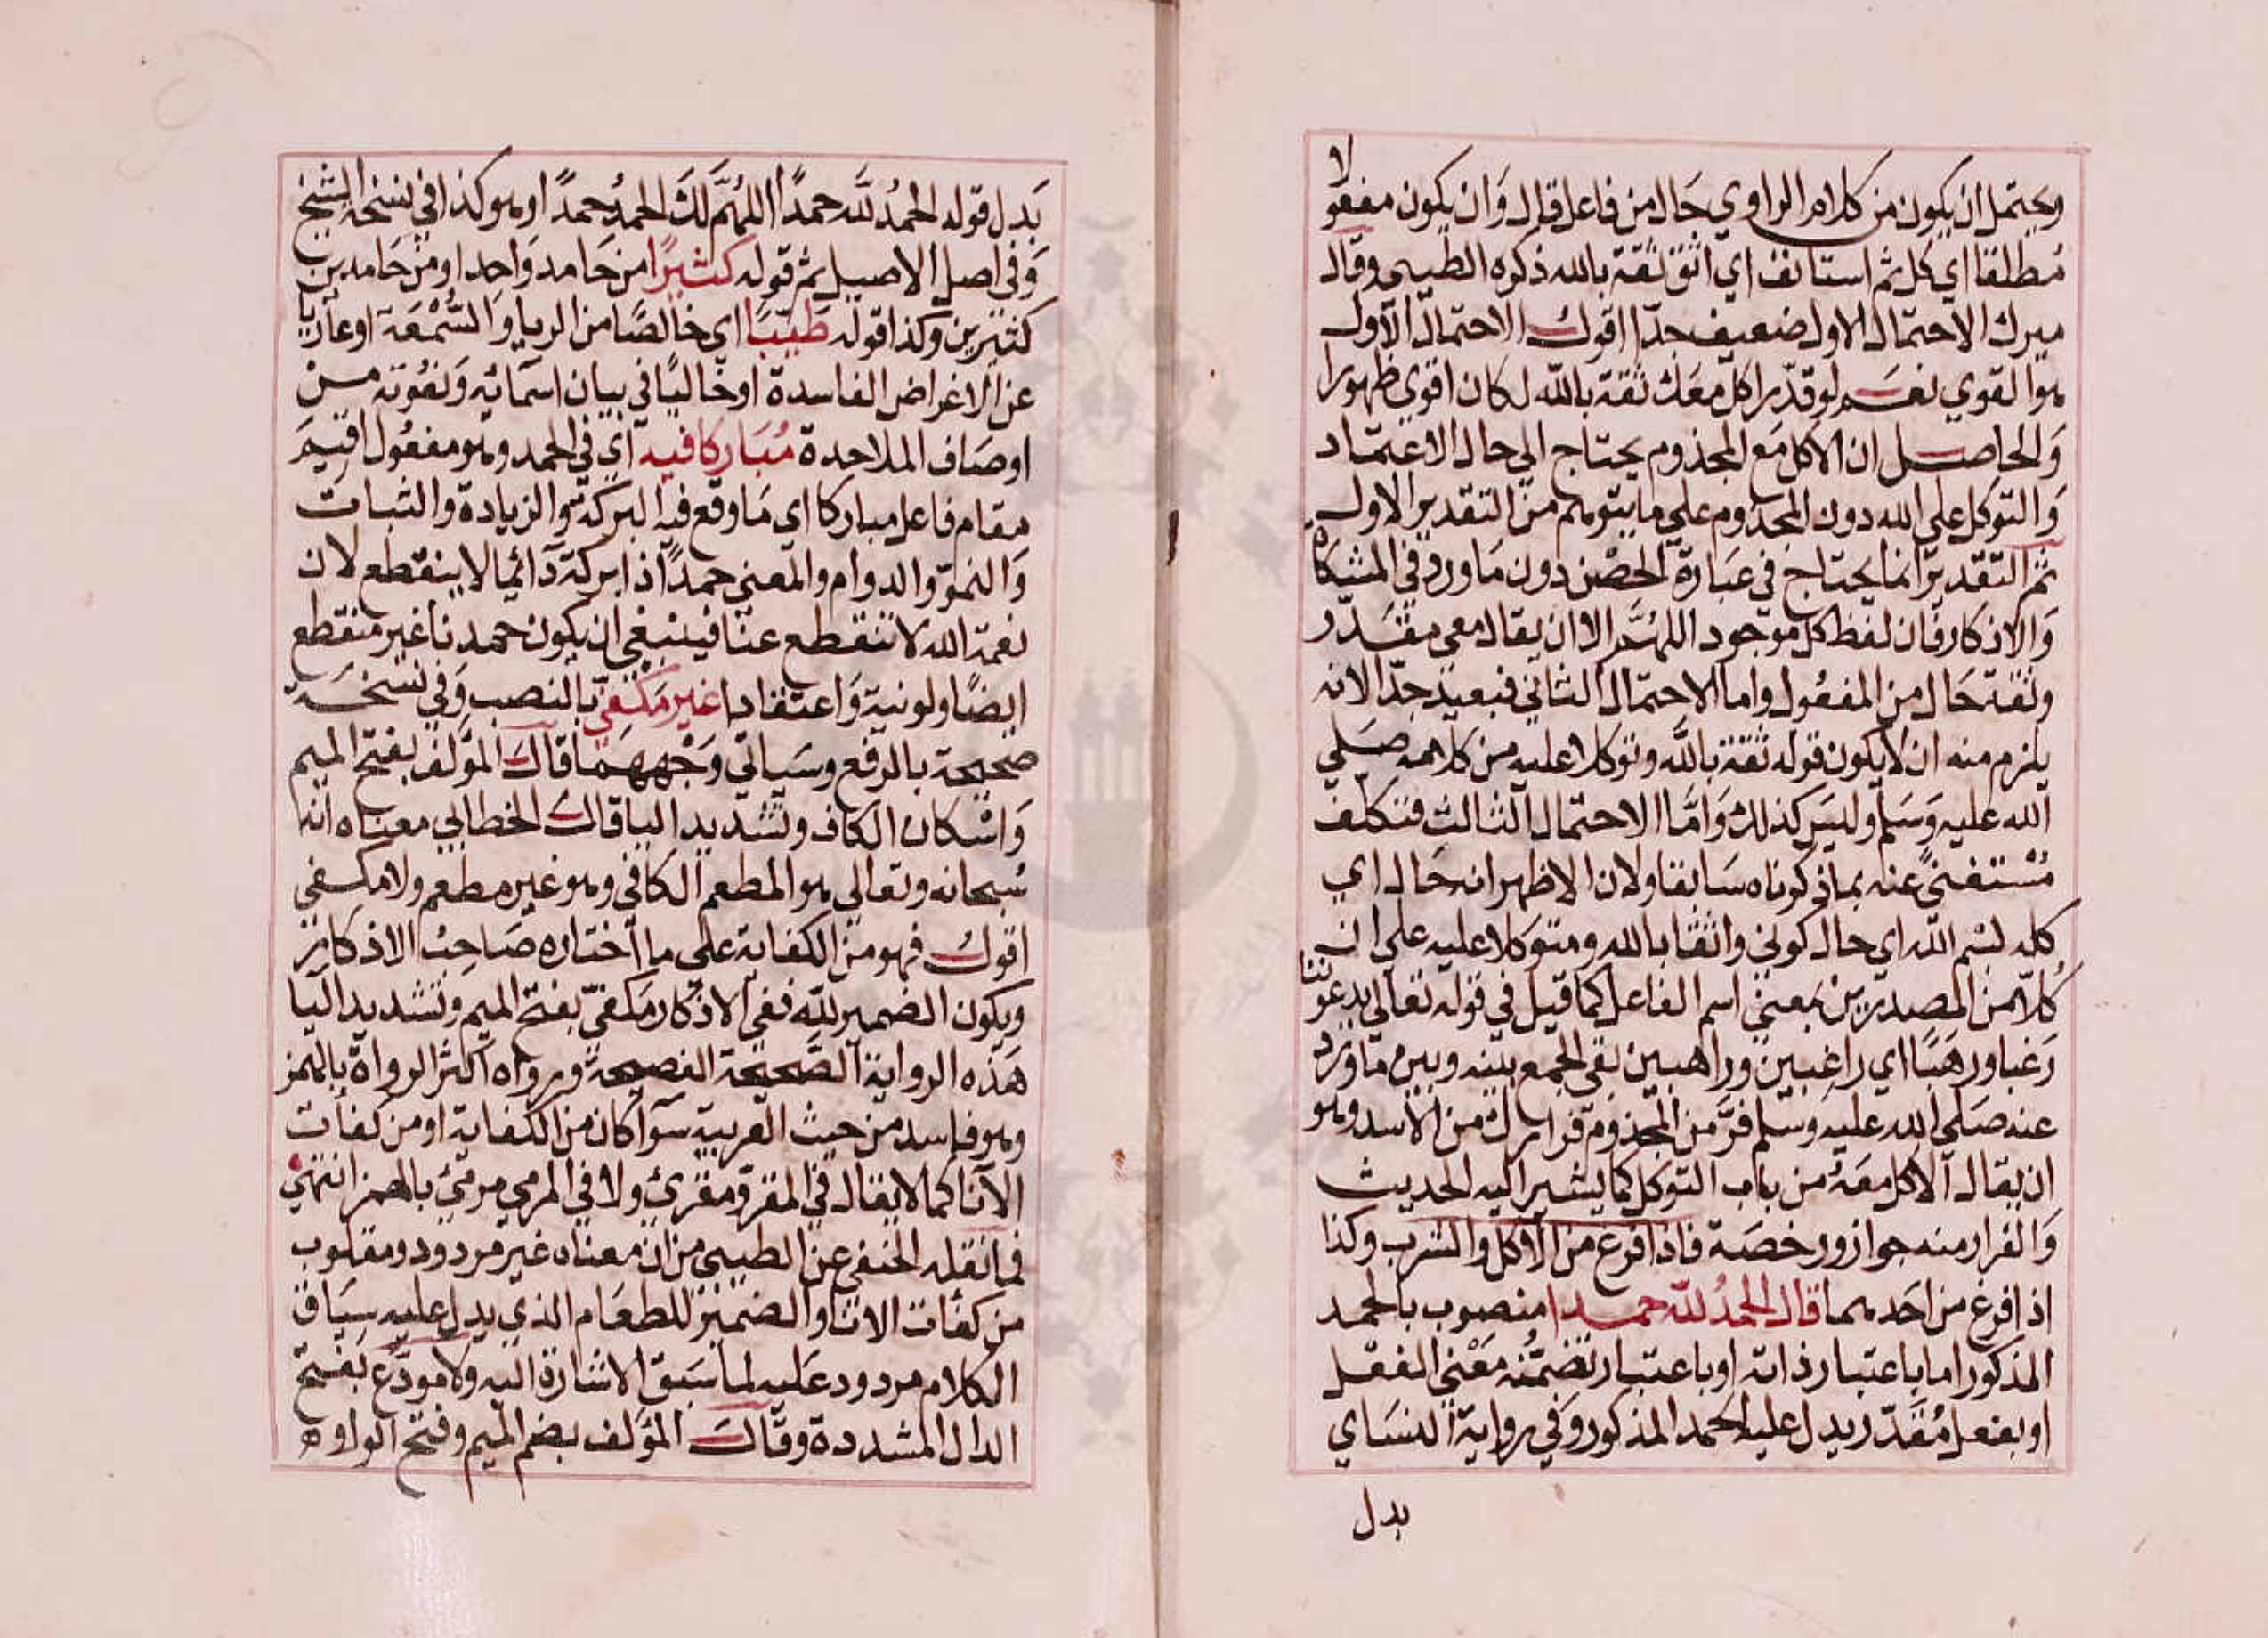 ويحتمل ان يكون من كلام الراوي حَال من فاعل قال وَان يكون مفعولا
مُطلقا اي كل ثم استانف اي اثق ثقة بالله ذكره الطيبي وقال
ميرك الاحتمال الاول ضعيف جدّا اقول الاحتمال الاول
هو القوي نعم لو قدّر اكل معك ثقة بالله لكان اقوي ظهورا
وَالحاصل ان الاكل مَع المجذوم يحتاج الي حال الاعتماد
وَالتوكل علي الله دون المجذوم علي ما يتوهم من التقدير الاول
ثم التقدير انما يحتاج في عبَارة الحصْن دون مَا ورد في المشكاة
وَالاذكار فان لفظ كل موجود اللهُمَّ الا ان يقال معي مقَدّر
وثقة حَال من المفعُول واما الاحتمال الثاني فبعيد جدّا لانه
يلزم منه ان لا يكون قوله ثقة بالله وتوكلا عليه من كلامه صَلي
الله عليه وَسَلم وليسَ كذلك وَامَّا الاحتمال الثالث فتكلف
مُسْتغنيً عنه بما ذكرناه سَابقا ولان الاظهر انه حَال اي
كله بسْم الله اي حال كوني واثقا بالله ومتوكلا عليه علي ان
كُلّا من المصدرين بمَعني اسم الفاعل كما قيل في قوله تعالي يدعوننا
رَغبا ورهَبًا اي راغبين وراهبين بقي الجمع بينه وبين مَا ورد
عنه صَلي الله عليه وسلم فرَّ من المجذوم فرارك من الاسد وهو
ان يقال الاكل معَهُ من باب التوكل كما يشير اليه الحديث
وَالفرار منه جواز ورخصَة فاذا فرغ من الأكل والشرب وكذا
اذا فرغ من احَدهما قال الحمدُ لله حمدا منصوب بالحمد
المذكور اما باعتبار ذاته او باعتبار تضمّنه مَعْني الفعل
او بفعل مُقَدّر يدل عليه الحمد المذكور وَفي رواية النسَاي
بدل
بَدل قوله الحمدُ لله حمدًا اللهُمَّ لكَ الحمدُ حمدًا وهو كذا في نسخة الشيخ
وَفي اصل الاصيل ثم قوله كثيرًا من حَامد وَاحد او من حَامدين
كثيرين وكذا قوله طَيّبًا اي خالصًا من الريا وَالسُّمْعَة او عاريا
عن الاغراض الفاسدة او خاليًا في بيان اسمَائه وَنعُوته منْ
اوصَاف الملاحدة مُبَاركا فيه اي في الحمد وهو مفعُول اقيمَ
مقام فاعل مباركا اي مَا وقع فيه البركة هو الزيادة والثبات
وَالنموّ والدوام والمعني حمدًا ذا بركة دَائما لا ينقطع لان
نعمة الله لا تنقطع عنا فينبغي ان يكون حمدنا غير منقطع
ايضًا ولو نية وَاعتقادا غير مَكفيّ بالنصب وَفي نسخَة
صحيحة بالرفع وسَياتي وَجْههمَا قالَ المؤلف بفتح الميم
وَاسْكان الكاف وتشديد اليا قال الخطابي معناه انه
سُبحانه وتعالي هو المطعم الكافي وهو غير مطعم ولا مكفي
اقول فهو من الكفاية علي ما اختاره صَاحبُ الاذكار
ويكون الضمير لله ففي الاذكار مَكفيّ بفتح الميم وتشديد اليا
هَذه الرواية الصَّحيحة الفصيحة ورواه اكثر الرواة بالهمز
وهو فاسد من حيث العربية سَوا كان من الكفاية او من كفأت
الانَا كما لا يقال في المقرو مقرئ ولا في المرمي مرمئ بالهمز انتهي
فما نقله الحنفي عن الطيبي من ان معناه غير مردود ومقلوب
من كفأت الانا والضمير للطعَام الذي يدل عليه سِيَاق
الكلام مردود عَليه لما سَبق الاشارة اليه ولا مودَّع بَفتح
الدال المشددة وقالَ المؤلف بضم الميم وفتح الواو